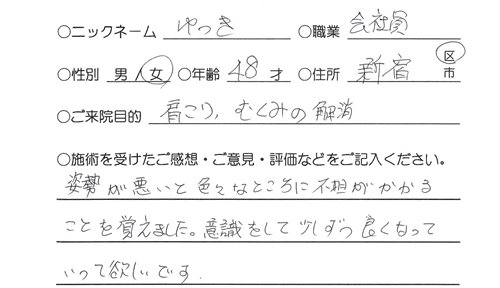 ○ニックネーム ゆっき ○職業 会社員
○性別 男 女 ○年齢 48 才 ○住所 新宿 区 市
○ご来院目的 肩こり、むくみの解消
○施術を受けたご感想・ご意見・評価などをご記入ください。
姿勢が悪いと色々なところに不担がかかる
ことを覚えました。意識をして少しずつ良くなって
いって欲しいです.